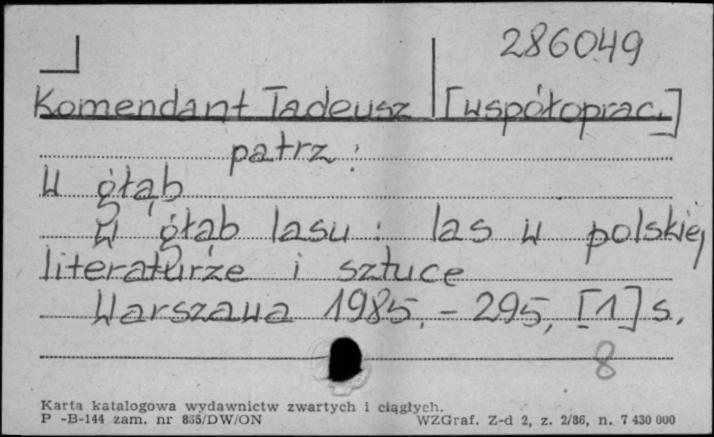 286049
Komendant Tadeusz [współoprac.]
patrz:
W głąb
W głąb lasu: las w polskiej
literaturze i sztuce
Warszawa 1985. - 295, [1] s.
8
Karta katalogowa wydawnictw zwartych i ciągłych.
P -B-144 zam. nr 835/DW/ON WZGraf. Z-d 2, z. 2/86, n. 7 430 000